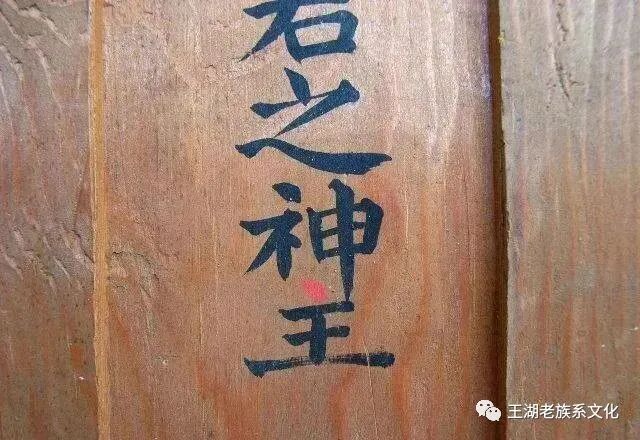 君之神主
王湖老族系文化